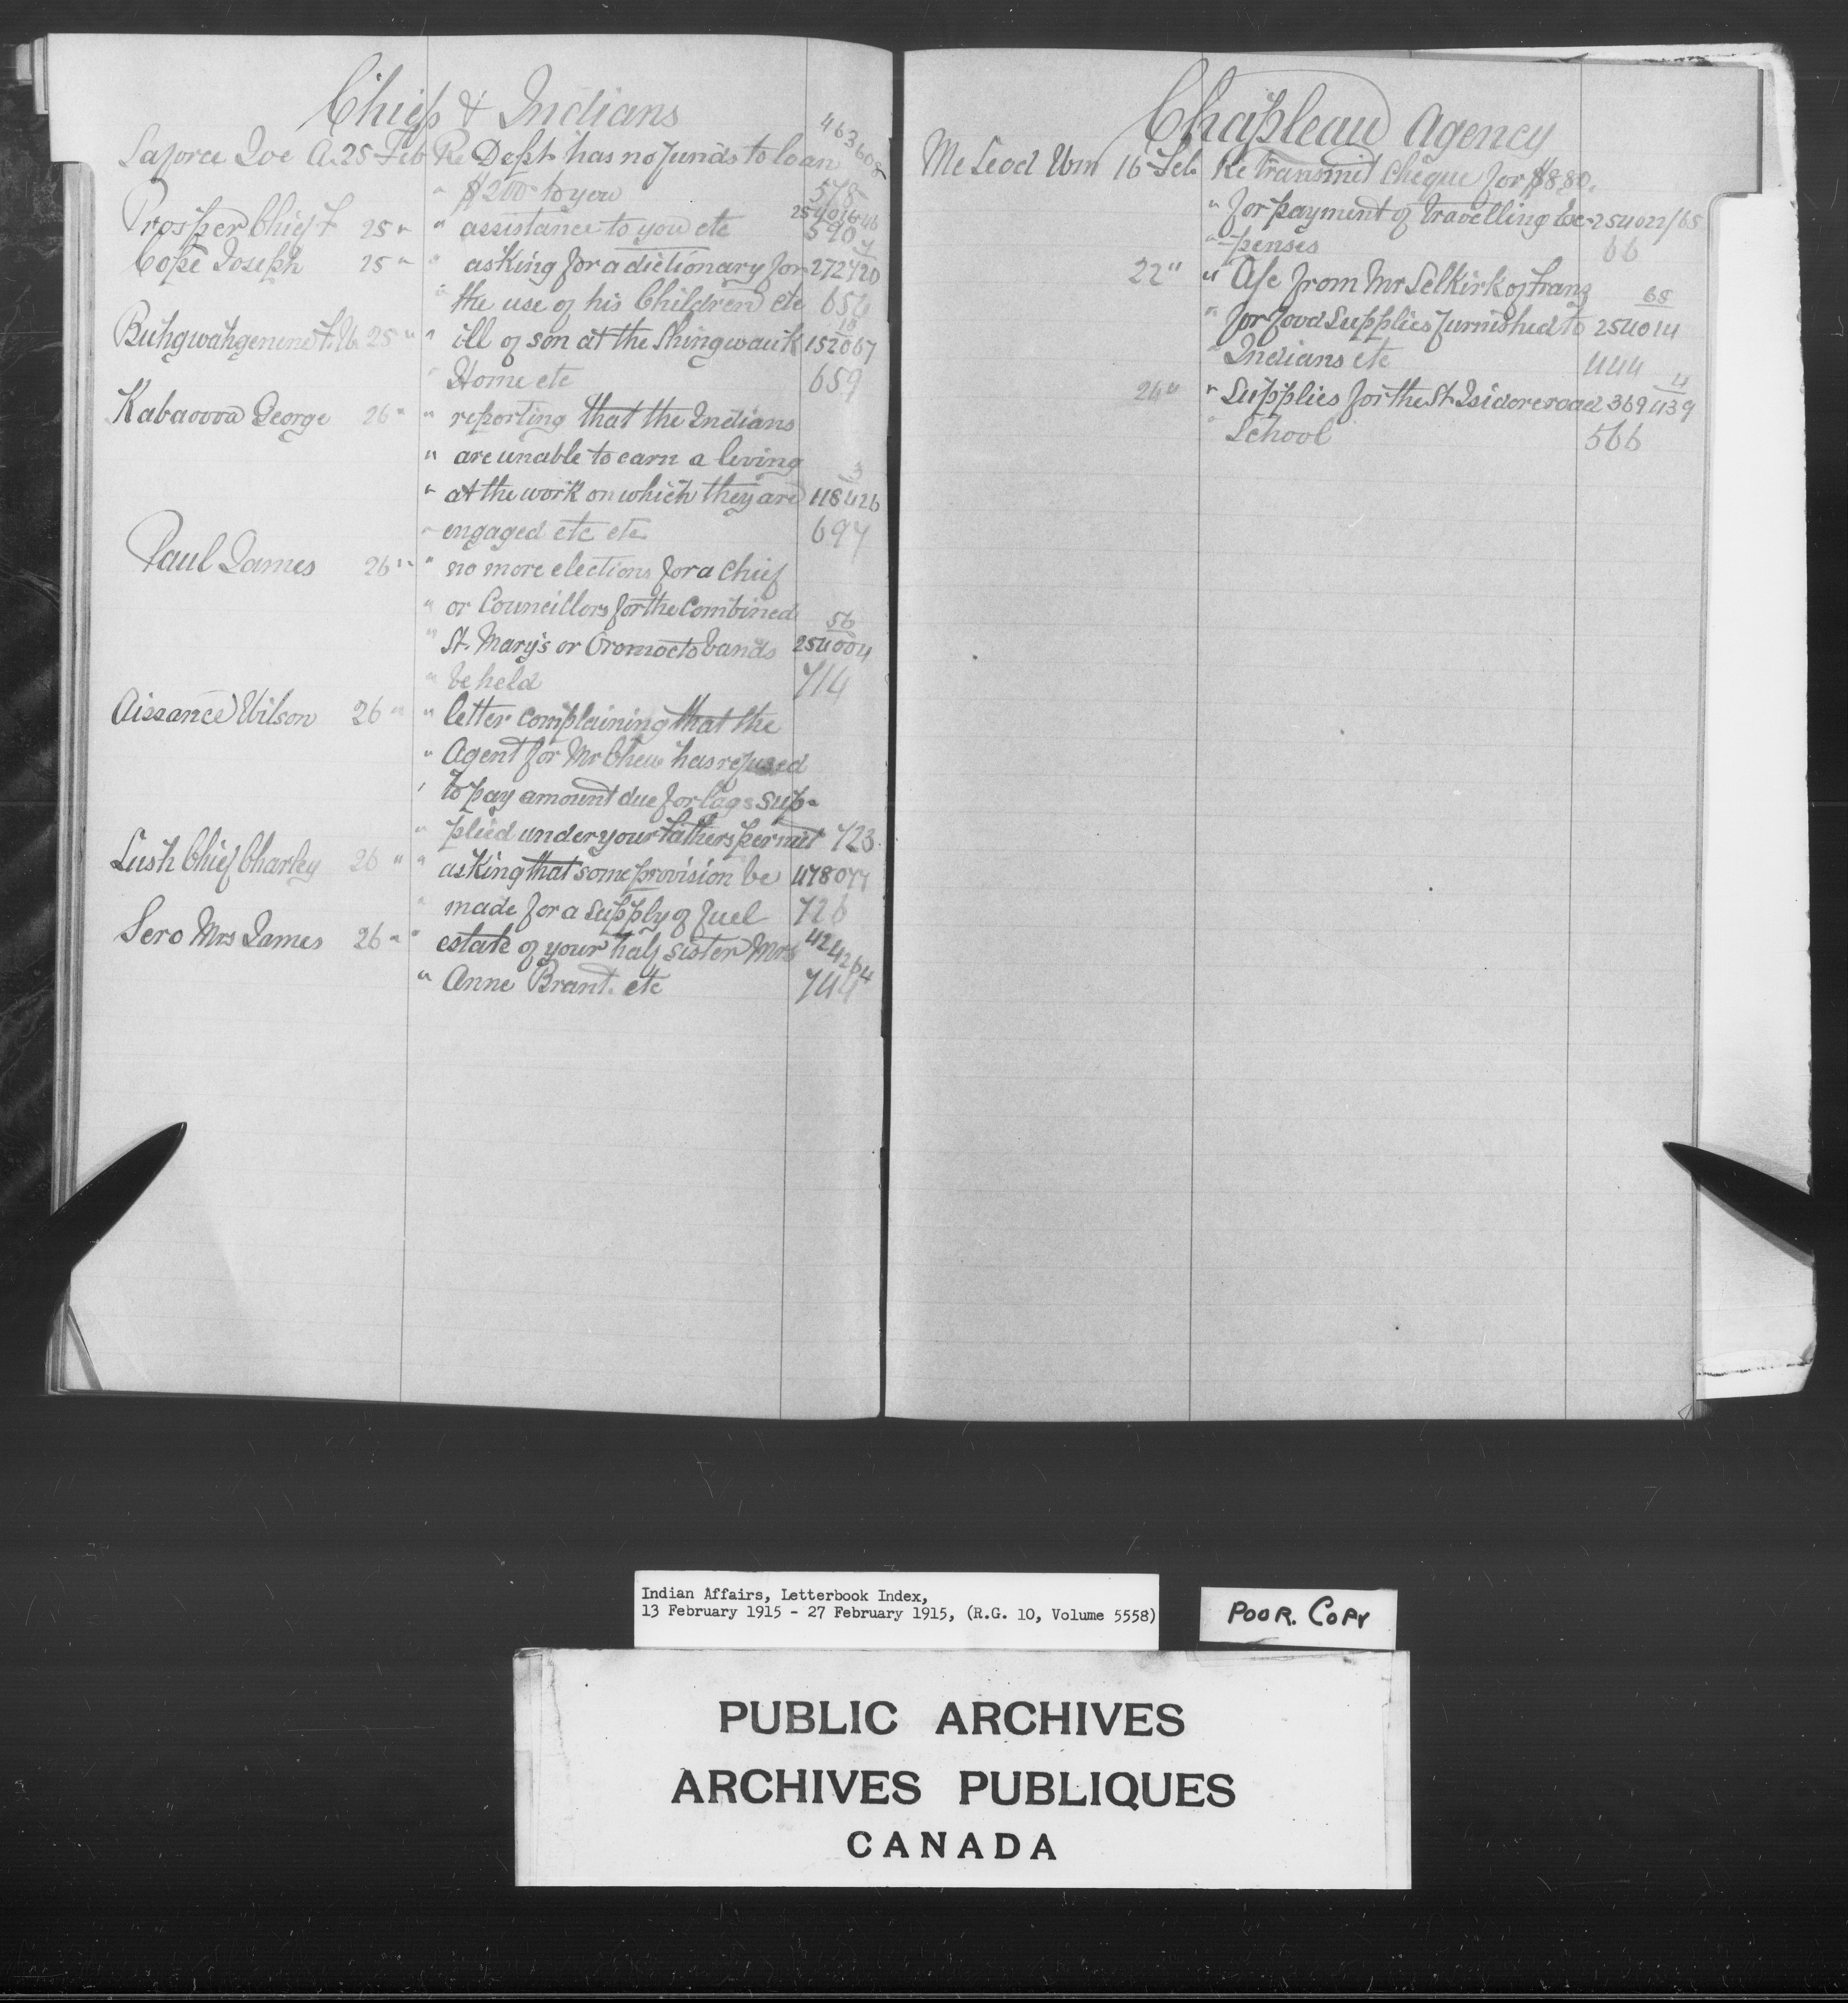 Chiefs & Indians
463608
Laforce Joe A. 25 Feb Re Dept has no funds to loan
" $200 to you 578
254016-46
Prosper Chief F 25 " " assistance to you etc 590
7
Cope Joseph 25 " " asking for a dictionary for 272720
" the use of his Children etc 654
18
Buhgwahgenene 25 " " ill of son at the Shingwauk 152067
" Home etc 659
Kabaoosa George 26 " " reporting that the Indians
" are unable to earn a living
3
" at the work on which they are 118426
" engaged etc etc 697
Paul James 26 " " no more elections for a Chief
" or Councillors for the Combined
56
" St. Mary's or Oromocto bands 254004
" be held 714
Aissance Wilson 26 " " letter complaining that the
" Agent for Mr Chew has refused
" to pay amount due for logs sup-
" plied under your fathers permit 723
Lush Chief Charley 26 " " asking that some provision be 478077
" made for a supply of fuel 726
Sero Mrs James 26 " " estate of your half sister Mrs 424264
" Anne Brant. etc 744
Chapleau Agency
McLeod Wm 16 Feb Re transmit Cheque for $8.80.
" for payment of travelling Ex- 254022/65
" penses 66
22 " " A/c from Mr Selkirk of Franz
68
" for food supplies furnished to 254014
" Indians etc 444
4
24 " " Supplies for the St. Isidore road 369439
" School 566
Indian Affairs, Letterbook Index,
13 February 1915 - 27 February 1915, (R.G. 10, Volume 5558)
POOR. COPY
PUBLIC ARCHIVES
ARCHIVES PUBLIQUES
CANADA